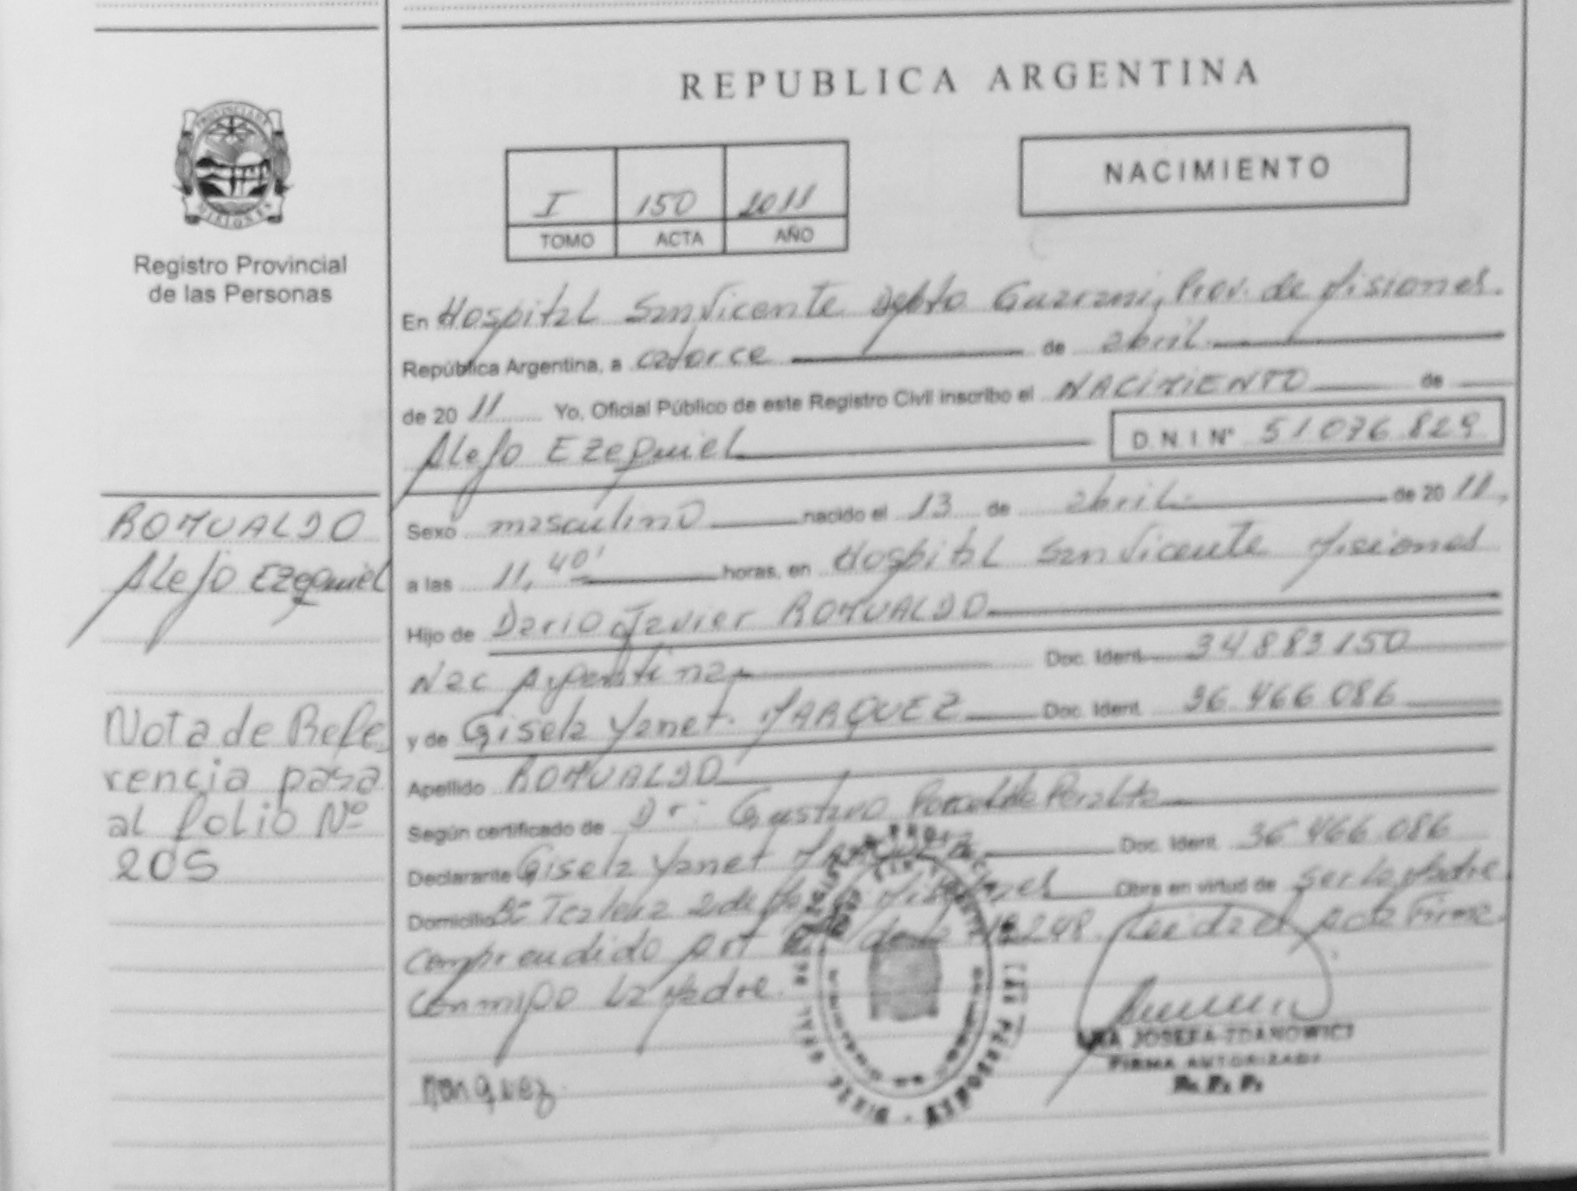 REPUBLICA ARGENTINA
NACIMIENTO
I 150 2011
TOMO ACTA AÑO
MISIONES
Registro Provincial
de las Personas
En Hospital San Vicente Depto Guarani, Prov. de Misiones.
República Argentina, a catorce de abril
de 20 11 Yo, Oficial Público de este Registro Civil inscribo el NACIMIENTO de
Alejo EZequiel D.N.I. N° 51 076.829
Sexo masculino nacido el 13 de abril de 20 11,
a las 11,40' horas, en Hospital San Vicente Misiones
Hijo de Dario Javier ROMUALDO
Nac Argentina Doc. Ident. 34 883 150
y de Gisela Yanet. MARQUEZ Doc. Ident. 36.466 086
Apellido ROMUALDO
Según certificado de Dr: Gustavo Peralta
Declarante Gisela Yanet Doc. Ident. 36 466 086
Domicilio Misiones Obra en virtud de ser la Madre
comprendido Art 18.248. Leida el Acta Firma
Conmigo la Madre.
Marquez
JOSEFA ZDANOWICZ
FIRMA AUTORIZADA
R. P. P.
ROMUALDO
Alejo EZequiel
Nota de Refe
rencia pasa
al folio Nº
205